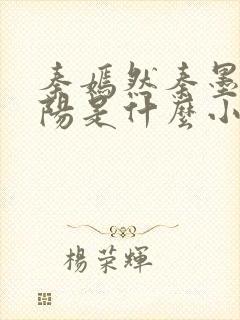 秦嫣然秦墨
陽是什麼小
楊榮輝